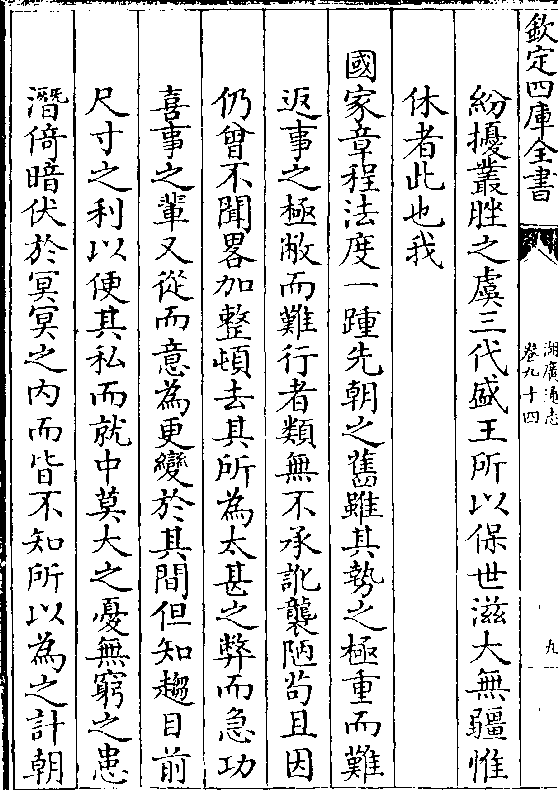 欽定四庫全書
湖廣通志
卷九十四
九
紛擾叢脞之虞三代盛王所以保世滋大無疆惟
休者此也我
國家章程法度一踵先朝之舊雖其勢之極重而難
返事之極敝而難行者類無不承訛襲陋茍且因
仍曾不聞畧加整頓去其所為太甚之弊而急功
喜事之輩又從而意為更變於其間但知趨目前
尺寸之利以便其私而就中莫大之憂無窮之患
潛倚暗伏於冥冥之内而皆不知所以為之計朝